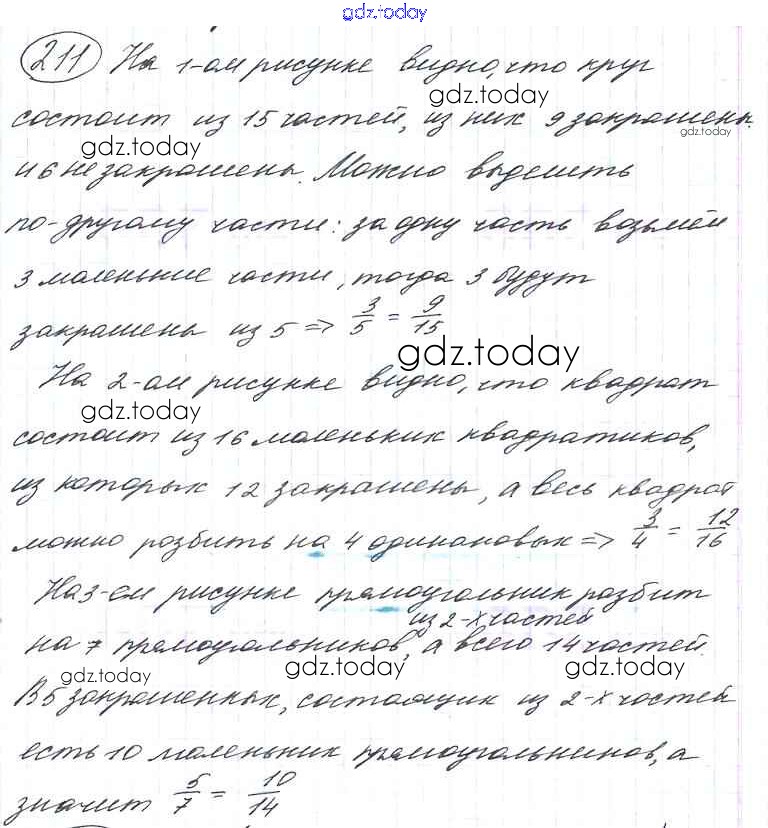 gdz.today
211 На 1-ом рисунке видно, что круг
gdz.today
состоит из 15 частей, из них 9 закрашены
gdz.today
gdz.today
и 6 не закрашены. Можно выделить
по-другому части: за одну часть возьмём
3 маленькие части, тогда 3 будут
закрашены из 5 => 3/5 = 9/15
gdz.today
На 2-ом рисунке видно, что квадрат
gdz.today
состоит из 16 маленьких квадратиков,
из которых 12 закрашены, а весь квадрат
можно розбить на 4 одинаковых => 3/4 = 12/16
На 3-ем рисунке прямоугольник розбит
из 2-х частей
на 7 прямоугольников, а всего 14 частей.
gdz.today
gdz.today
gdz.today
В 5 закрашенных, состоящих из 2-х частей
есть 10 маленьких прямоугольников, а
значит 5/7 = 10/14